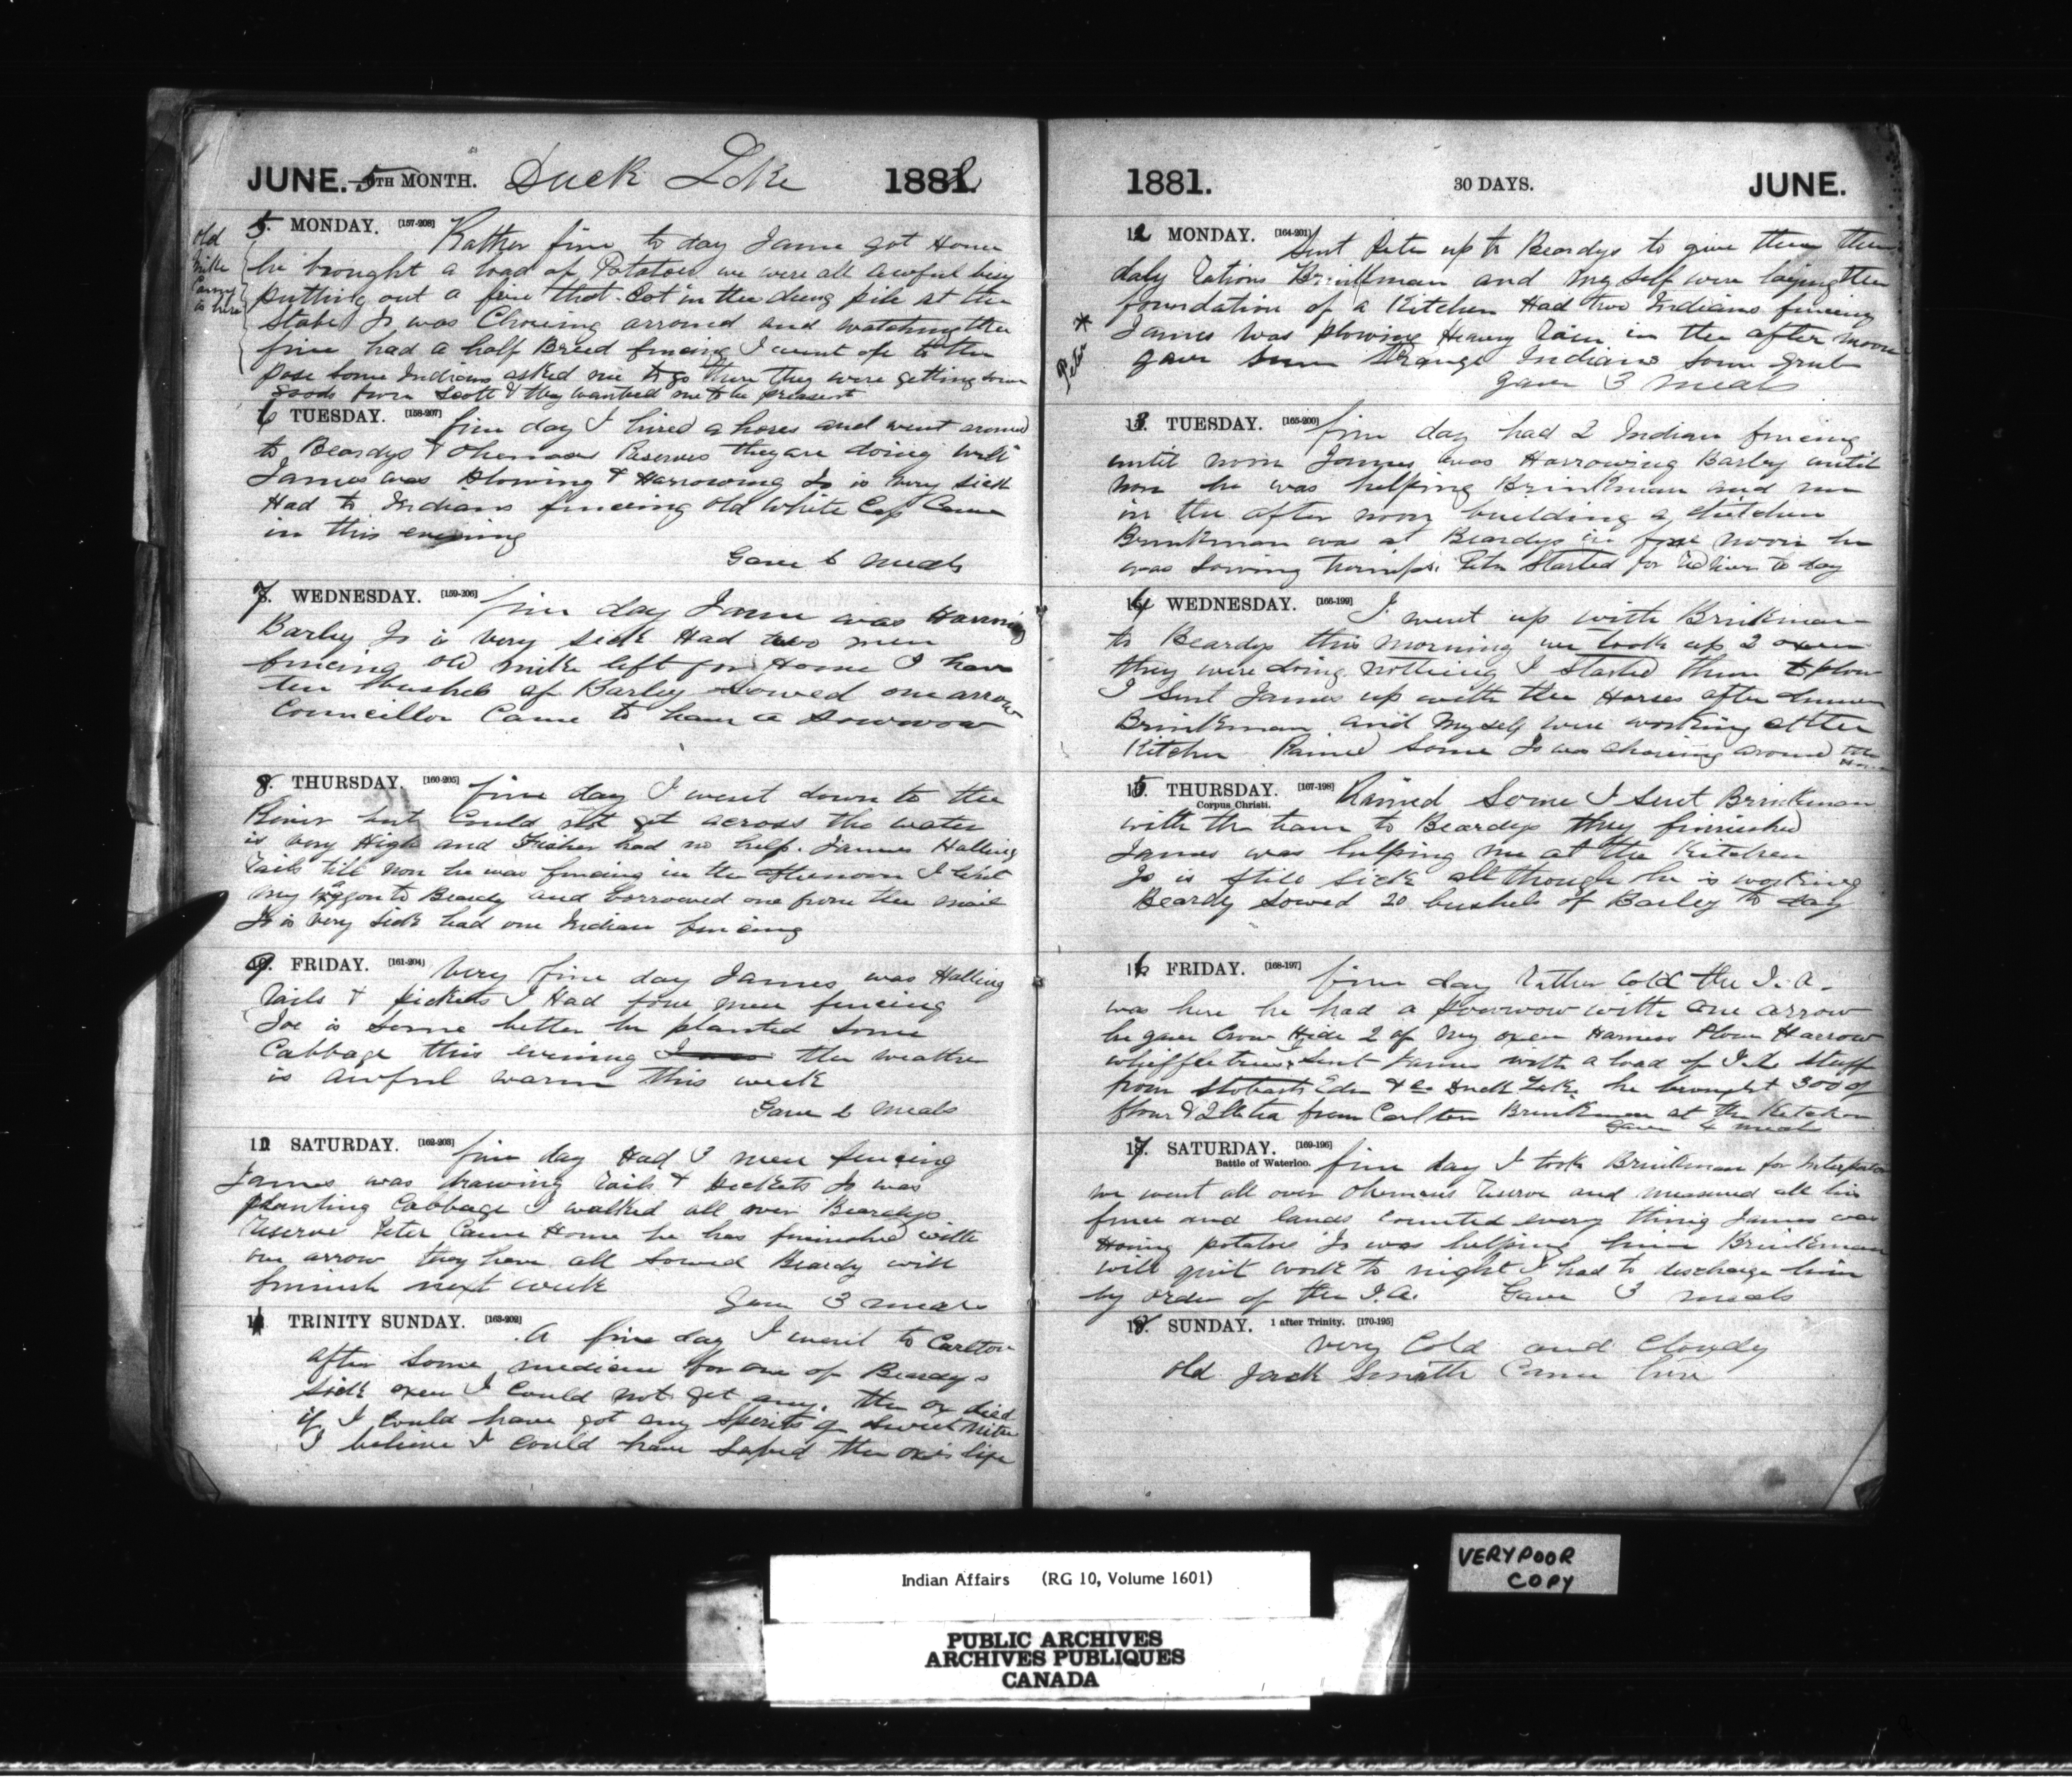 JUNE. 5 6TH MONTH. Duck Lake 1882
old
Mike
Canny
is here
5. MONDAY. [157-208] Rather fine to day Jame got Home
he brought a load of Potatoes we were all awful bisy
putting out a fire that Got in the dung pile at the
Stabel Jo was Choreing arround and watching the
fire had a half Breed fencing I went up to the
some Indians asked me to go there they were getting some
goods from Scott & they wanted me to be present
6 TUESDAY. [158-207] fine day I hired a hores and went around
to Beardys & Okemases Reserves they are doing well
James was Plowing & Harrowing Jo is very sick
Had to Indians fenceing old White Cap Came
in this evening
Gave 6 meals
7. WEDNESDAY. [159-206] fine day Jame was
Barley Jo is very sick Had two men
fencing old Mike left for Home I have
ten bushels of Barley sowed one arrow
Councillor Came to have a Powwow
8. THURSDAY. [160-205] fine day I went down to the
River but Could not get across the water
is very High and Fisher had no help. James Halling
rails till non he was fencing in the afternoon I sent
my waggon to Beardy and borrowed one from the mail
Jo is very sick had one Indian fencing
9. FRIDAY. [161-204] Very fine day James was Halling
rails & pickets I Had four men fencing
Joe is some better he planted some
Cabbage this evening the weather
is awful warm this week
Gave 6 meals
10 SATURDAY. [162-203] fine day Had 3 men fencing
James was drawing rails & Pickets Jo was
planting Cabbage I walked all over Beardys
reserve Peter Came Home he has finished with
one arrow they have all sowed Beardy will
finish next week
Gave 3 meals
11 TRINITY SUNDAY. [163-202] A fine day I went to Carlton
after some medicine for one of Beardys
sick oxen I Could not get any. the ox died
if I could have got any Spirits of Sweet Nitre
I believe I could have saved the ox's life
1881. 30 DAYS. JUNE.
* Peter
12 MONDAY. [164-201] Sent Peter up to Beardys to give them their
daly rations Brinkman and my self were laying the
foundation of a Kitchen Had two Indians fencing
James was plowing Heavy rain in the after noon
gave some strange Indians some grub
gave 3 meals
13. TUESDAY. [165-200] fine day had 2 Indian fencing
until noon James was Harrowing Barley until
non he was helping Brinkman and me
in the after noon building a Kitchen
Brinkman was at Beardys in fore noon he
was sowing turnips. Peter Started for to day
14 WEDNESDAY. [166-199] I went up with Brinkman
to Beardys this morning we took up 2 oxen
they were doing nothing I started them to plow
I sent James up with the Horses after dinner
Brinkman and myself were working at the
Kitchen Rained some Jo was choreing around the
15 THURSDAY. [167-198] Rained Some I sent Brinkman
Corpus Christi.
with the team to Beardys they finished
James was helping me at the Kitchen
Jo is still sick all though he is working
Beardy sowed 20 bushels of Barley to day
16 FRIDAY. [168-197] fine day rather Cold the I. A.
was here he had a Powwow with one arrow
he gave Crow Hide 2 of my oxen Harness Plow Harrow
whiffletrees I sent James with a load of I.A. stuff
from Stobarts Eden & Co Duck Lake he brought 300 of
flour & 2 lb tea from Carlton Brinkman at the Kitchen
Gave 4 meals
17. SATURDAY. [169-196] fine day I took Brinkman for
Battle of Waterloo.
we went all over Okemases reserve and measured all his
fence and lands counted every thing James was
Hoeing potatoes Jo was helping him Brinkman
will quit work to night I had to discharge him
by order of the I.A. Gave 3 meals
18. SUNDAY. 1 after Trinity. [170-195]
very Cold and Cloudy
old Jack Smith Came here
VERY POOR
COPY
Indian Affairs (RG 10, Volume 1601)
PUBLIC ARCHIVES
ARCHIVES PUBLIQUES
CANADA